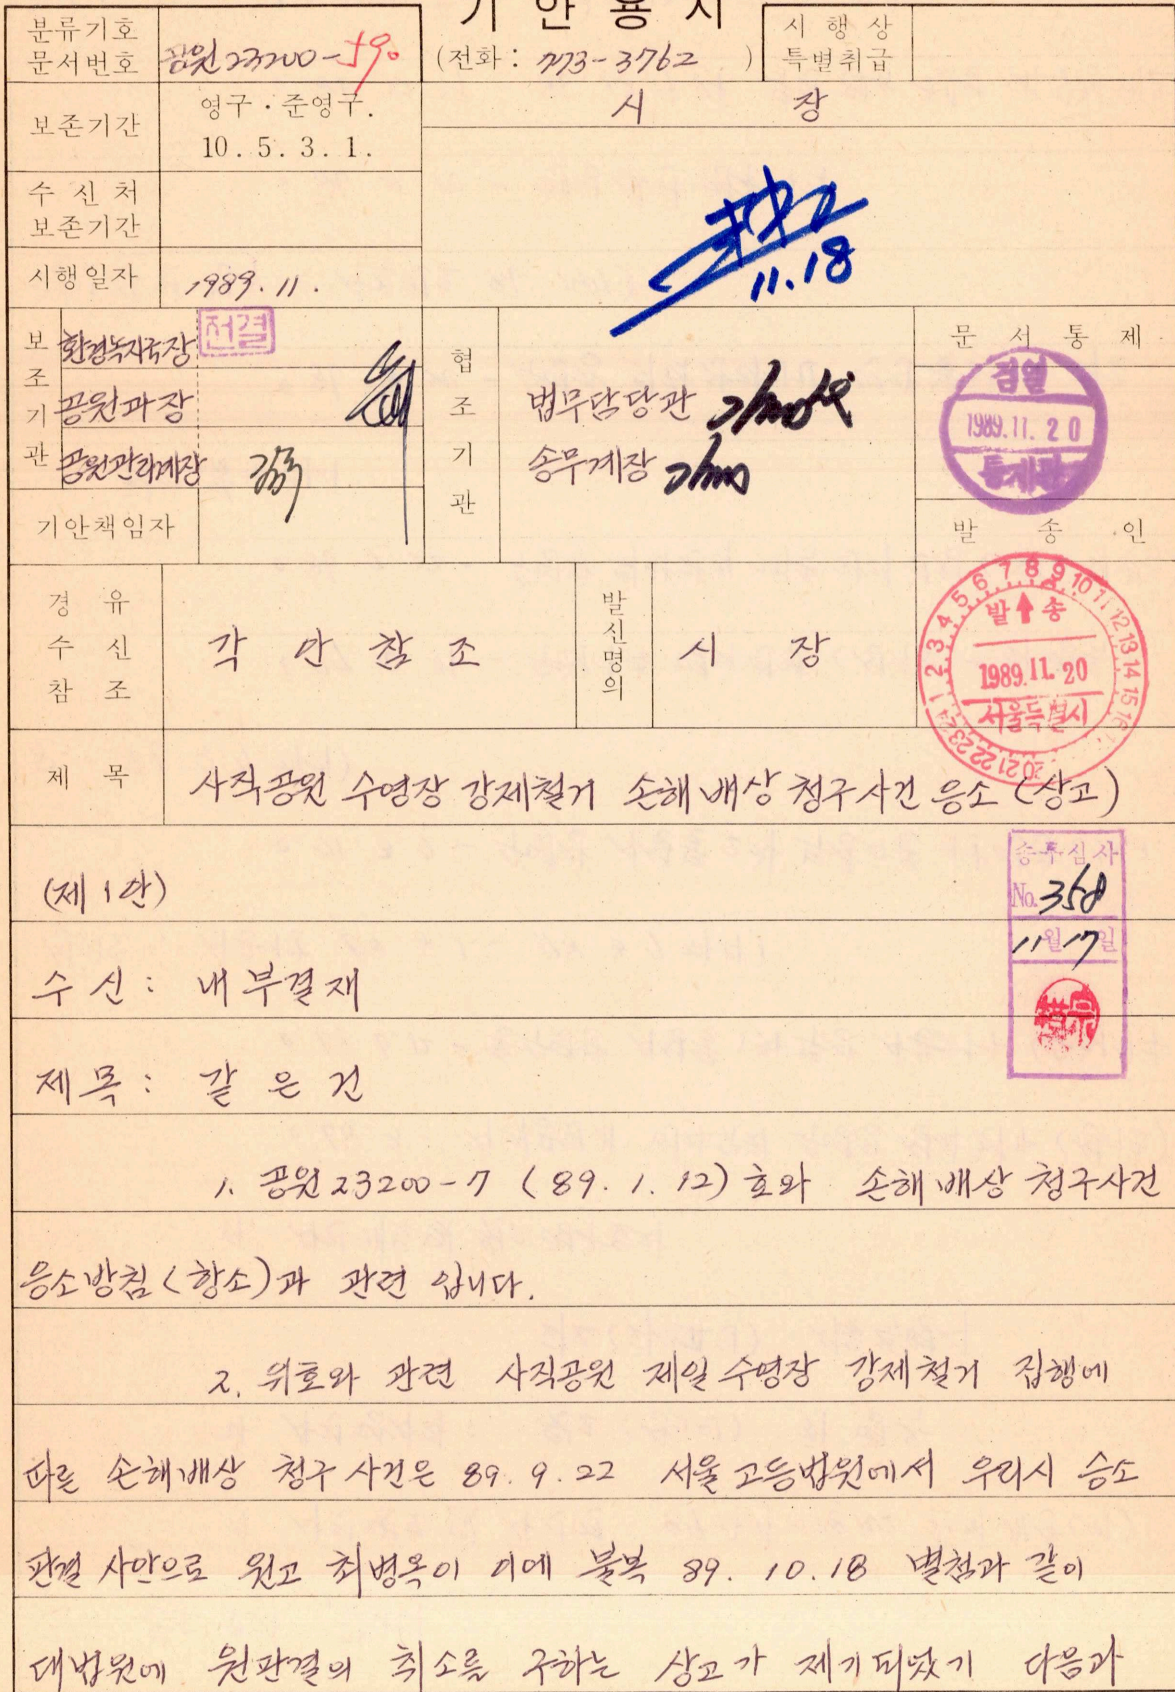 기 안 용 지
분류기호
문서번호 공원 23200-590
(전화 : 773-3762 )
시 행 상
특별취급
보존기간
영구 · 준영구.
10 . 5 . 3 . 1 .
시 장
수 신 처
보존기간
11.18
시행일자 1989. 11 .
보조기관
환경녹지국장
전결
공원과장
공원관리계장
기안책임자
협조기관
법무담당관
송무계장
문 서 통 제
검열
1989.11.20
통제관
발 송 인
경 유
수 신
참 조
각 안 참 조
발신명의
시 장
1 2 3 4 5 6 7 8 9 10 11 12 13 14 15 16
20 21 22 23 24
발 송
1989.11.20
서울특별시
제 목 사직공원 수영장 강제철거 손해배상 청구사건 응소 (상고)
송무심사
No. 358
11월 17일
(제 1 안)
수 신 : 내부결재
제 목 : 같 은 건
1. 공원 23200-7 (89. 1. 12) 호와 손해배상 청구사건
응소방침 (항소)과 관련 입니다.
2. 위호와 관련 사직공원 제일수영장 강제철거 집행에
따른 손해배상 청구 사건은 89. 9. 22 서울 고등법원에서 우리시 승소
판결 사안으로 원고 최병옥이 이에 불복 89. 10. 18 별첨과 같이
대법원에 원판결의 취소를 구하는 상고가 제기되었기 다음과